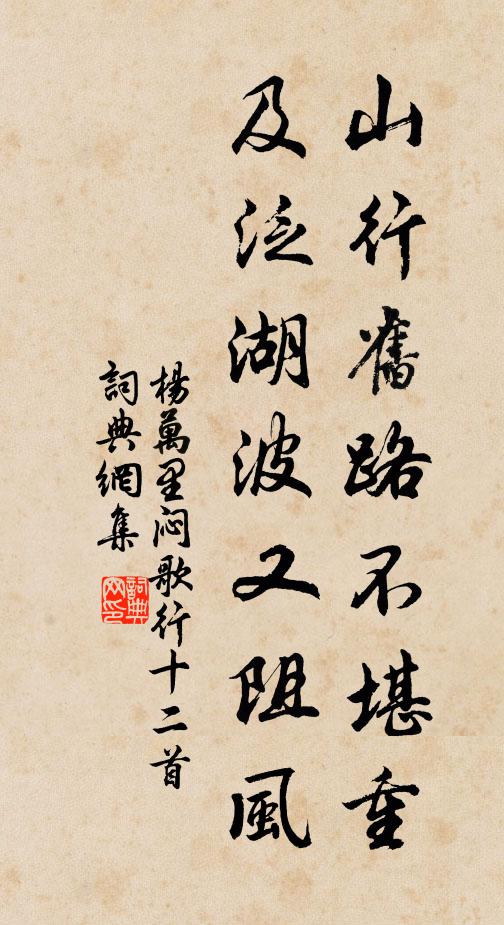 山行舊路不堪重
及泛湖波又阻風
楊萬里悶歌行十二首
詞典網集
詞典網印